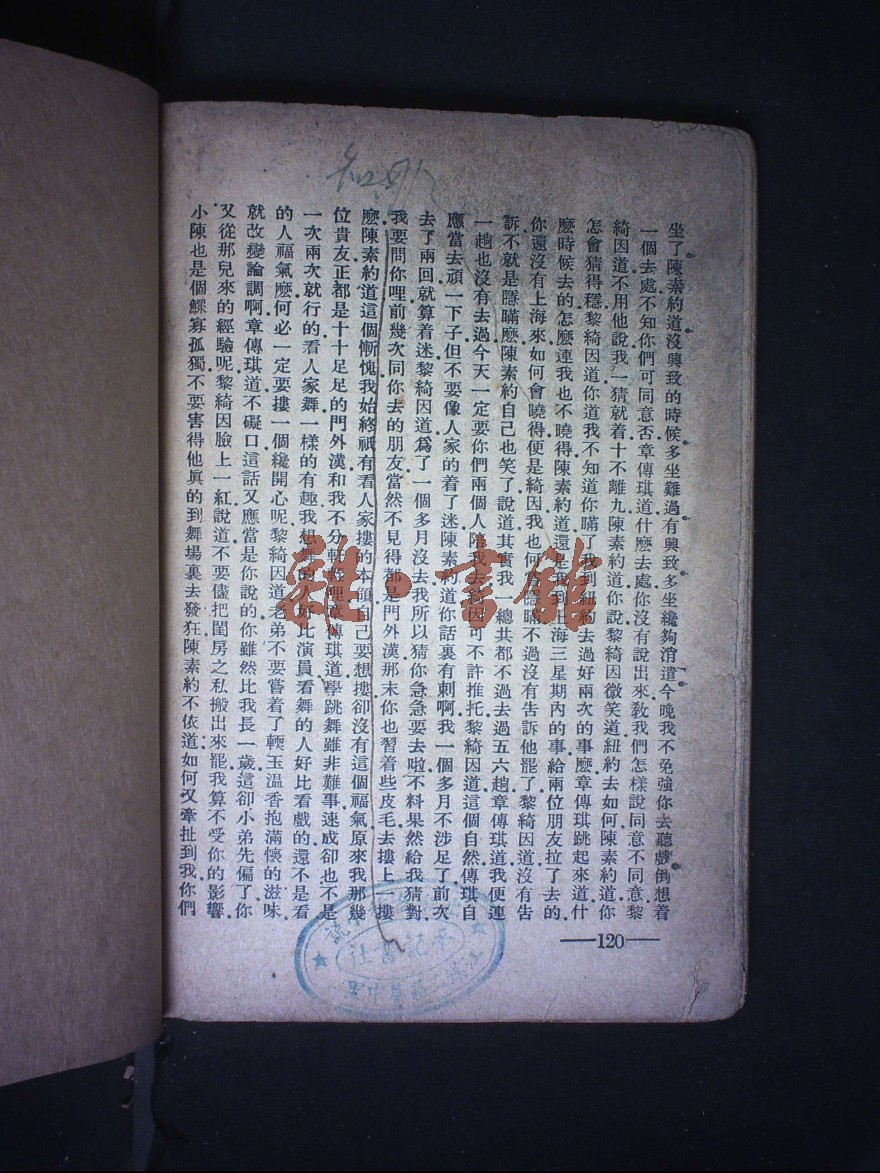 坐了陳素約道沒興致的時候多坐難過有興致多坐纔夠消遣今晚我不免強你去聽戲倒想着
一個去處不知你們可同意否章傳琪道什麽去處你沒有說出來敎我們怎樣說同意不同意黎
綺因道不用他說我一猜就着十不離九陳素約道你說黎綺因微笑道紐約去如何陳素約道你
怎會猜得穩黎綺因道你道我不知道你瞞了我到紐約去過好兩次的事麽章傳琪跳起來道什
麽時候去的怎麽連我也不曉得陳素約道還是我到上海三星期內的事給兩位朋友拉了去的
你還沒有上海來如何會曉得便是綺因我也何嘗隱瞞不過沒有告訴他罷了黎綺因道沒有告
訴不就是隱瞞麽陳素約自己也笑了說道其實我一總共都不過去過五六趟章傳琪道我便連
一趟也沒有去過今天一定要你們兩個人陪我去綺因可不許推托黎綺因道這個自然傳琪自
應當去頑一下子但不要像人家的着了迷陳素約道你話裏有刺啊我一個多月不涉足了前次
去了兩回就算着迷黎綺因道爲了一個多月沒去我所以猜你急急要去啦不料果然給我猜對
我要問你哩前幾次同你去的朋友當然不見得都是門外漢那末你也習着些皮毛去摟上一摟
麽陳素約道這個慚愧我始終祇有看人家摟的本領自己要想摟卻沒有這個福氣原來我那幾
位貴友正都是十十足足的門外漢和我不分軒輊哩章傳琪道學跳舞雖非難事速成卻也不是
一次兩次就行的看人家舞一樣的有趣我想舞的人好比演員看舞的人好比看戲的還不是看
的人福氣麽何必一定要摟一個纔開心呢黎綺因道老弟不要嘗着了輭玉温香抱滿懷的滋味
就改變論調啊章傳琪道不礙口這話又應當是你說的你雖然比我長一歲這卻小弟先偏了你
又從那兒來的經驗呢黎綺因臉上一紅說道不要儘把閨房之私搬出來罷我算不受你的影響
小陳也是個鰥寡孤獨不要害得他眞的到舞場裏去發狂陳素約不依道如何又牽扯到我你們
120
雜·書館